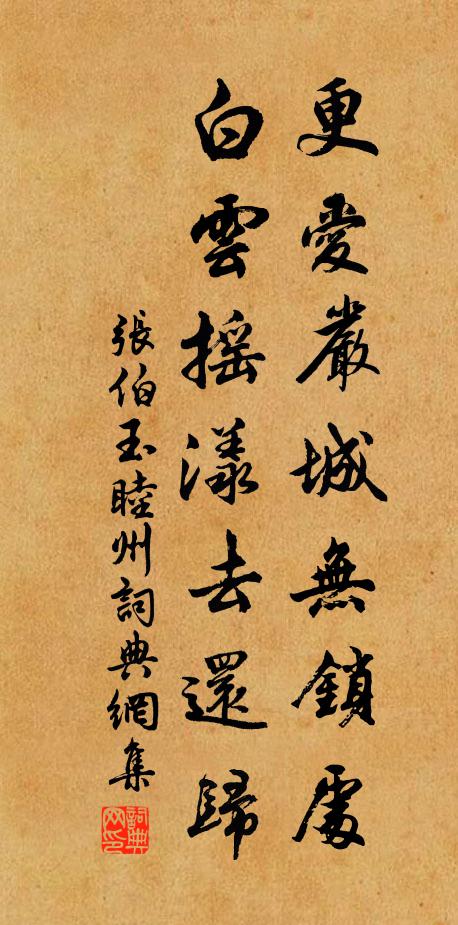 更愛嚴城無鎖處
白雲搖漾去還歸
張伯玉睦州詞典網集
詞典网印